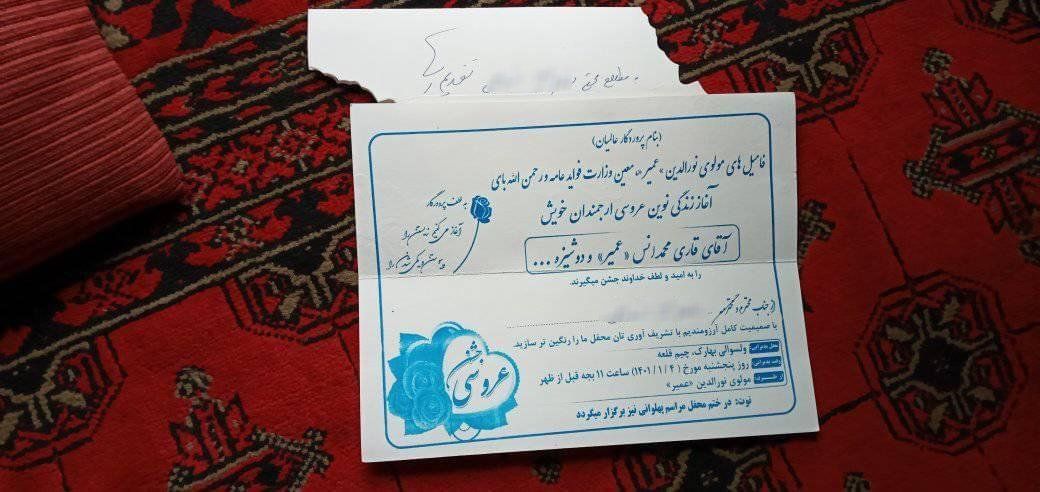 تقدیم است
به مطالعه محترم
(بنام پروردگار عالمیان)
فامیل های مولوی نورالدین «عمیر» معین وزارت فواید عامه و رحمن الله بای
آغاز زندگی نوین عروسی ارجمندان خویش
آقای قاری محمد انس «عمیر» و دوشیزه ...
را به امید و لطف خداوند جشن میگیرند.
به لطف پروردگار
آغاز می کنیم زیستن را
از جناب محترم
با صمیمیت کامل آرزومندیم با تشریف آوری تان محفل ما را رنگین تر سازید.
محل پذیرائی: ولسوالی بهارک، چیم قلعه
وقت پذیرائی: روز پنجشنبه مورخ (۱۴۰۱/۱/۴) ساعت ۱۱ بجه قبل از ظهر
از طرف: مولوی نورالدین «عمیر»
نوت: در ختم محفل مراسم پهلوانی نیز برگزار میگردد
جشن
عروسی